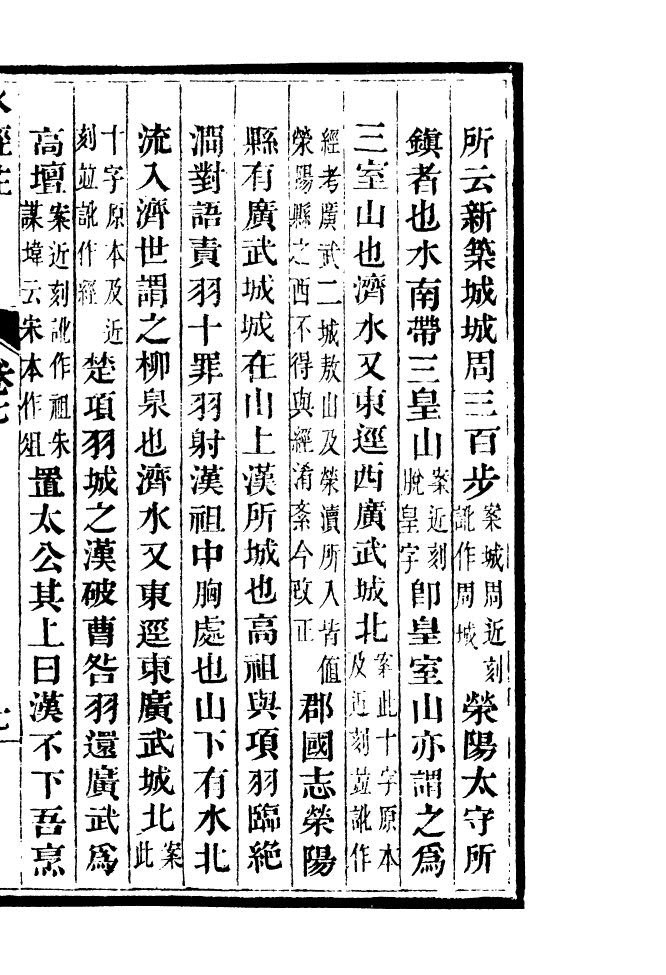 所云新築城城周三百步案城周近刻訛作周城滎陽太守所
鎮者也水南帶三皇山案近刻脫皇字卽皇室山亦謂之爲
三室山也濟水又東逕西廣武城北案此十字原本及近刻並訛作
經考廣武二城敖山及滎瀆所入皆値滎陽縣之西不得與經淆紊今改正郡國志滎陽
縣有廣武城城在山上漢所城也高祖與項羽臨絶
澗對語責羽十罪羽射漢祖中胸處也山下有水北
流入濟世謂之柳泉也濟水又東逕東廣武城北案此
十字原本及近刻並訛作經楚項羽城之漢破曹咎羽還廣武爲
高壇案近刻訛作祖朱謀㙔云宋本作俎置太公其上曰漢不下吾烹
水經注
卷七
七